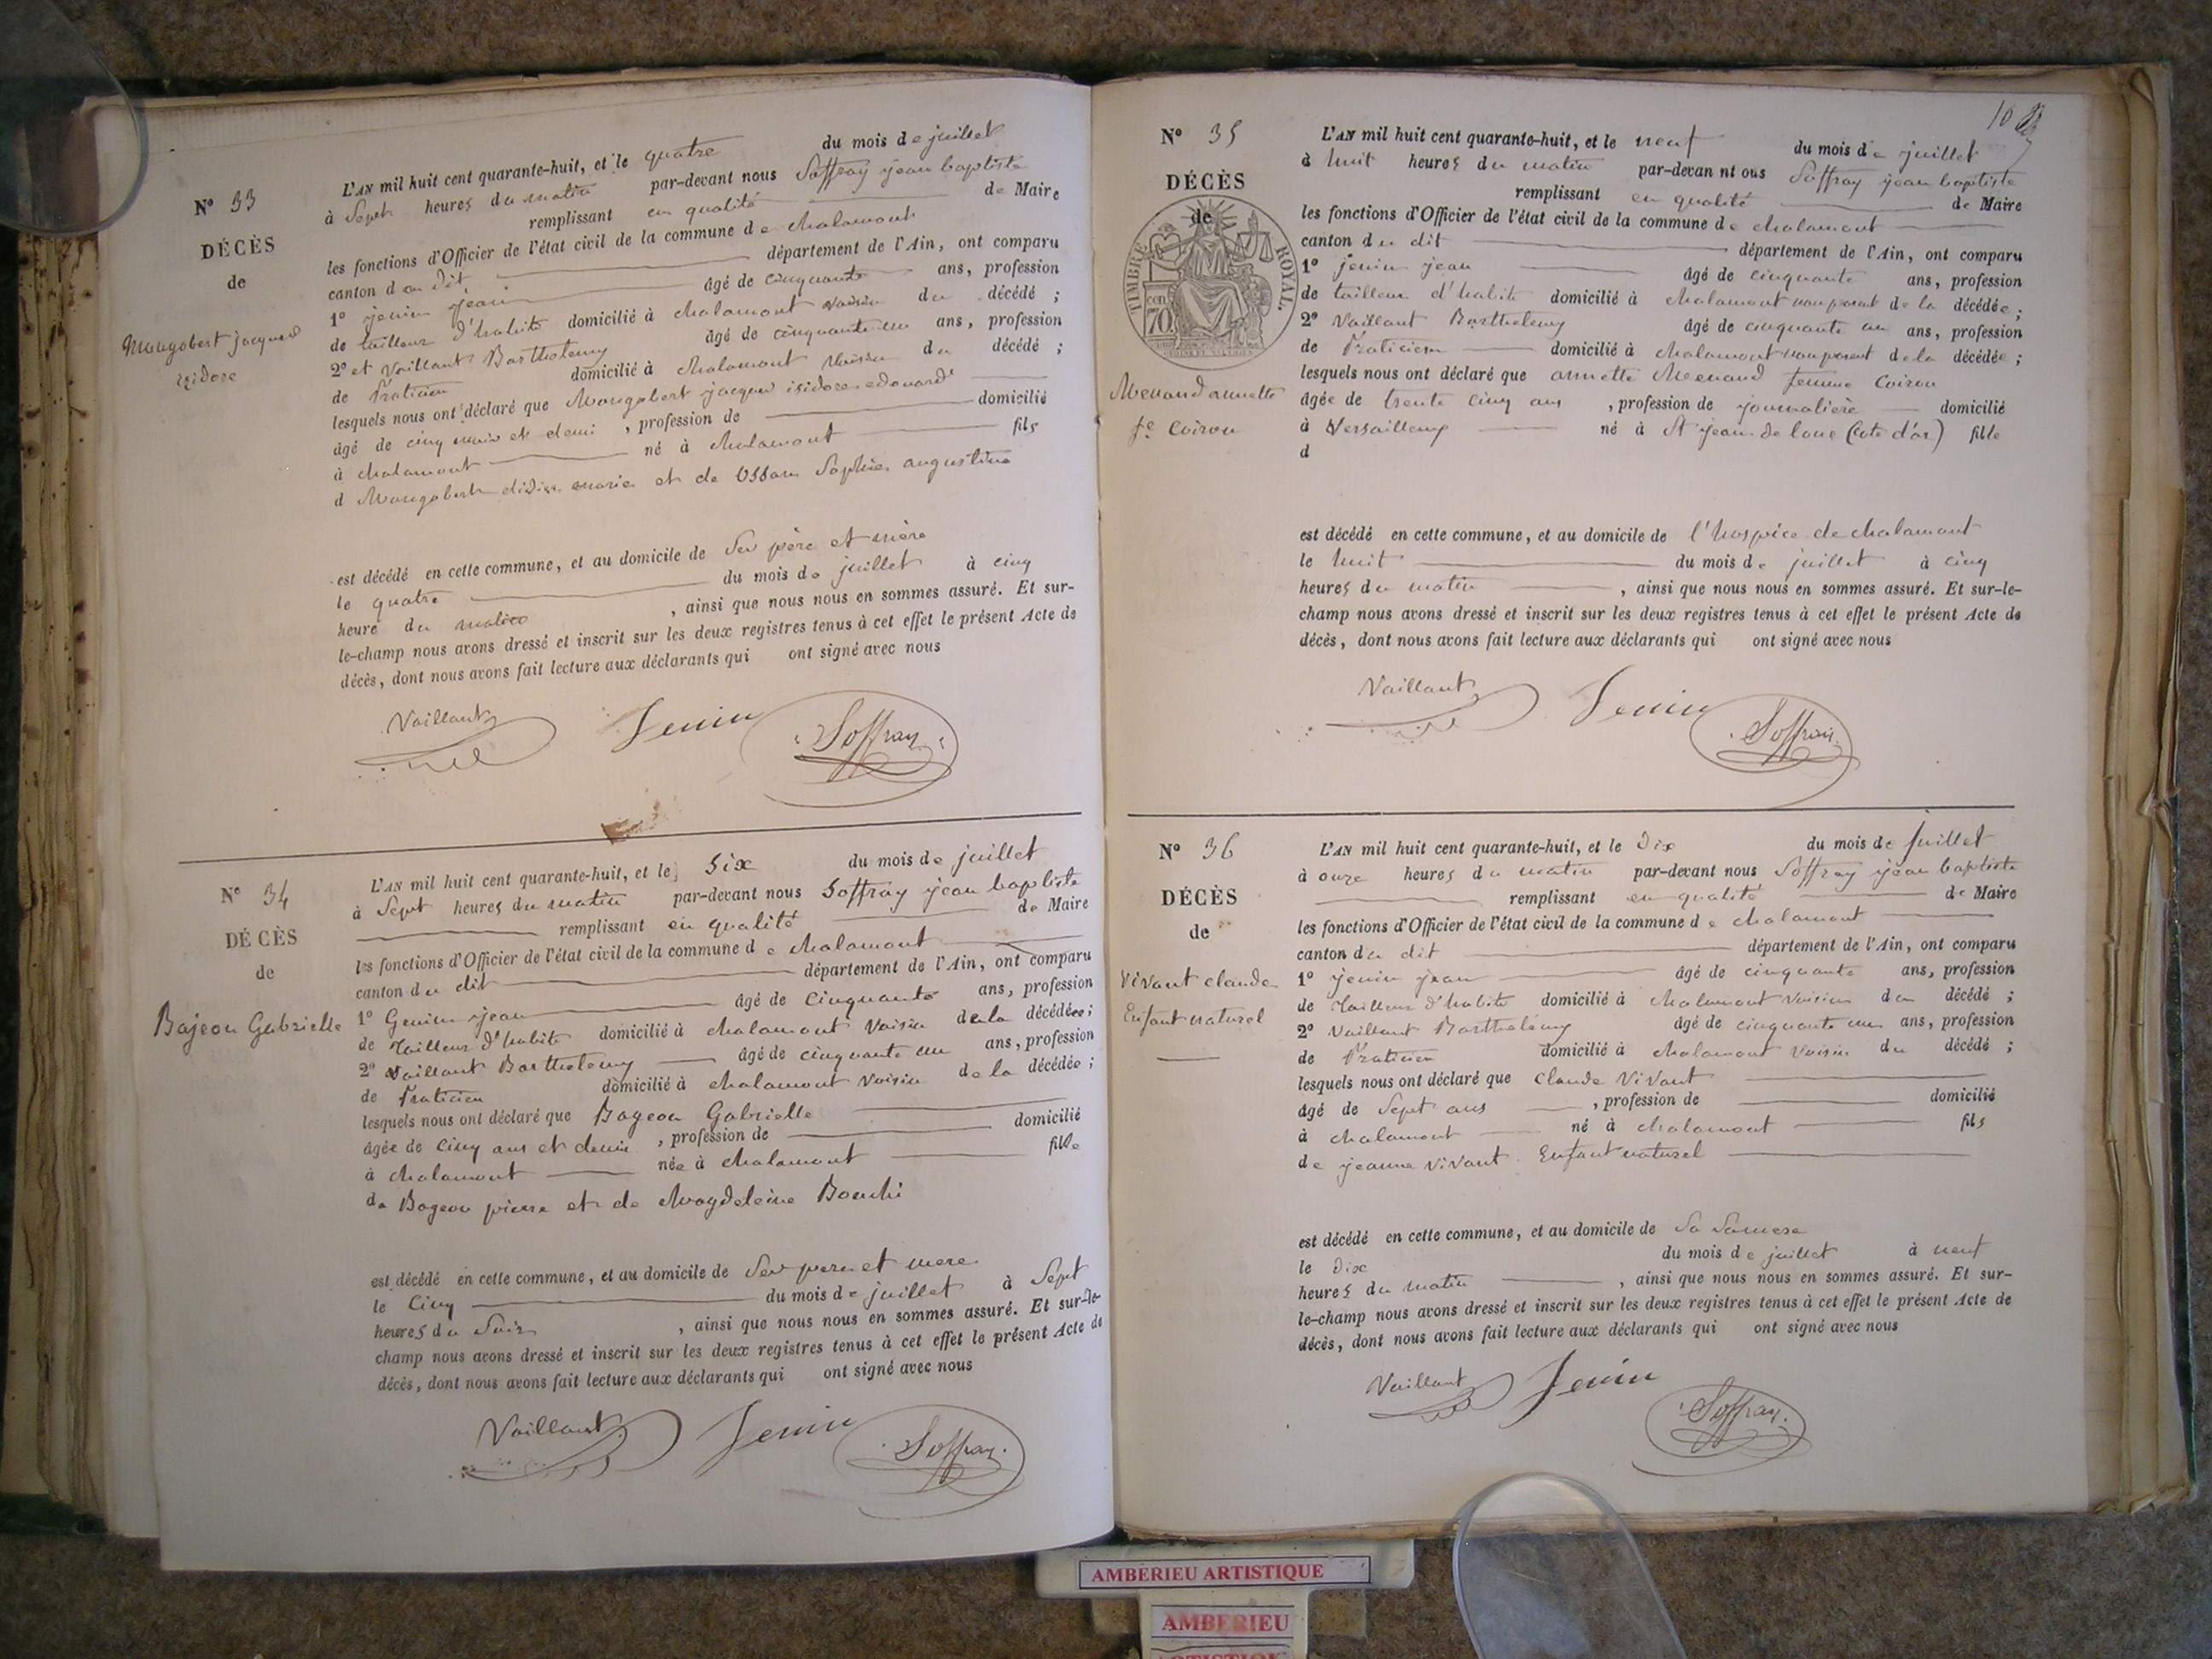 N° 33
DÉCÈS
de
Maugobert jacques
izidore
L'AN mil huit cent quarante-huit, et le quatre du mois de juillet
à Sept heures du matin par-devant nous Soffray jean baptiste
remplissant en qualité de Maire
les fonctions d'Officier de l'état civil de la commune de chalamont
canton du dit département de l'Ain, ont comparu
1° jenin jean âgé de cinquante ans, profession
de tailleur d'habits domicilié à chalamont voisin du décédé ;
2° et Vaillant Barthelemy âgé de cinquante un ans, profession
de Praticien domicilié à chalamont Voisin du décédé ;
lesquels nous ont déclaré que Maugobert jacques isidore edouard
âgé de cinq mois et demi , profession de domicilié
à chalamont né à chalamont fils
d Maugobert marie et de Sophie augustine
est décédé en cette commune, et au domicile de Ses père et mère
le quatre du mois de juillet à cinq
heure du matin , ainsi que nous nous en sommes assuré. Et sur-
le-champ nous avons dressé et inscrit sur les deux registres tenus à cet effet le présent Acte de
décès, dont nous avons fait lecture aux déclarants qui ont signé avec nous
Vaillant Jenin Soffray
N° 34
DÉCÈS
de
Bajeon Gabrielle
L'AN mil huit cent quarante-huit, et le Six du mois de juillet
à Sept heures du matin par-devant nous Soffray jean baptiste
remplissant en qualité de Maire
les fonctions d'Officier de l'état civil de la commune de chalamont
canton du dit département de l'Ain, ont comparu
1° Genin jean âgé de Cinquante ans, profession
de Tailleur d'habits domicilié à chalamont Voisin de la décédée ;
2° Vaillant Barthelemy âgé de cinquante un ans, profession
de Praticien domicilié à chalamont Voisin de la décédée ;
lesquels nous ont déclaré que Bageon Gabrielle
âgée de Cinq ans et demie , profession de domicilié
à chalamont née à chalamont fille
de Bageon pierre et de Magdeleine Bouchi
est décédé en cette commune, et au domicile de Ses pere et mere
le Cinq du mois de juillet à Sept
heures du Soir , ainsi que nous nous en sommes assuré. Et sur-le-
champ nous avons dressé et inscrit sur les deux registres tenus à cet effet le présent Acte de
décès, dont nous avons fait lecture aux déclarants qui ont signé avec nous
Vaillant Jenin Soffray
10
N° 35
DÉCÈS
de
TIMBRE ROYAL.
cen
70
Menand annette
fe Coiron
L'AN mil huit cent quarante-huit, et le neuf du mois de juillet
à huit heures du matin par-devan nt ous Soffray jean baptiste
remplissant en qualité de Maire
les fonctions d'Officier de l'état civil de la commune de chalamont
canton du dit département de l'Ain, ont comparu
1° jenin jean âgé de cinquante ans, profession
de tailleur d'habits domicilié à chalamont non parent de la décédée ;
2° Vaillant Barthelemy âgé de cinquante un ans, profession
de Praticien domicilié à chalamont non parent de la décédée ;
lesquels nous ont déclaré que annette Menand femme Coiron
âgée de trente cinq ans , profession de journalière domicilié
à Versailleux né à St jean de lone (cote d'or) fille
d
est décédé en cette commune, et au domicile de l'hospice de chalamont
le huit du mois de juillet à cinq
heures du matin , ainsi que nous nous en sommes assuré. Et sur-le-
champ nous avons dressé et inscrit sur les deux registres tenus à cet effet le présent Acte de
décès, dont nous avons fait lecture aux déclarants qui ont signé avec nous
Vaillant Jenin Soffray
N° 36
DÉCÈS
de
Vivant claude
Enfant naturel
L'AN mil huit cent quarante-huit, et le Dix du mois de juillet
à onze heures du matin par-devant nous Soffray jean baptiste
remplissant en qualité de Maire
les fonctions d'Officier de l'état civil de la commune de chalamont
canton du dit département de l'Ain, ont comparu
1° jenin jean âgé de cinquante ans, profession
de Tailleur d'habits domicilié à chalamont Voisin du décédé ;
2° Vaillant Barthelemy âgé de cinquante un ans, profession
de Praticien domicilié à chalamont Voisin du décédé ;
lesquels nous ont déclaré que Claude Vivant
âgé de Sept ans , profession de domicilié
à chalamont né à chalamont fils
de jeanne Vivant Enfant naturel
est décédé en cette commune, et au domicile de Sa
le Dix du mois de juillet à neuf
heures du matin , ainsi que nous nous en sommes assuré. Et sur-
le-champ nous avons dressé et inscrit sur les deux registres tenus à cet effet le présent Acte de
décès, dont nous avons fait lecture aux déclarants qui ont signé avec nous
Vaillant Jenin Soffray
AMBERIEU ARTISTIQUE
AMBERIEU
ARTISTIQUE